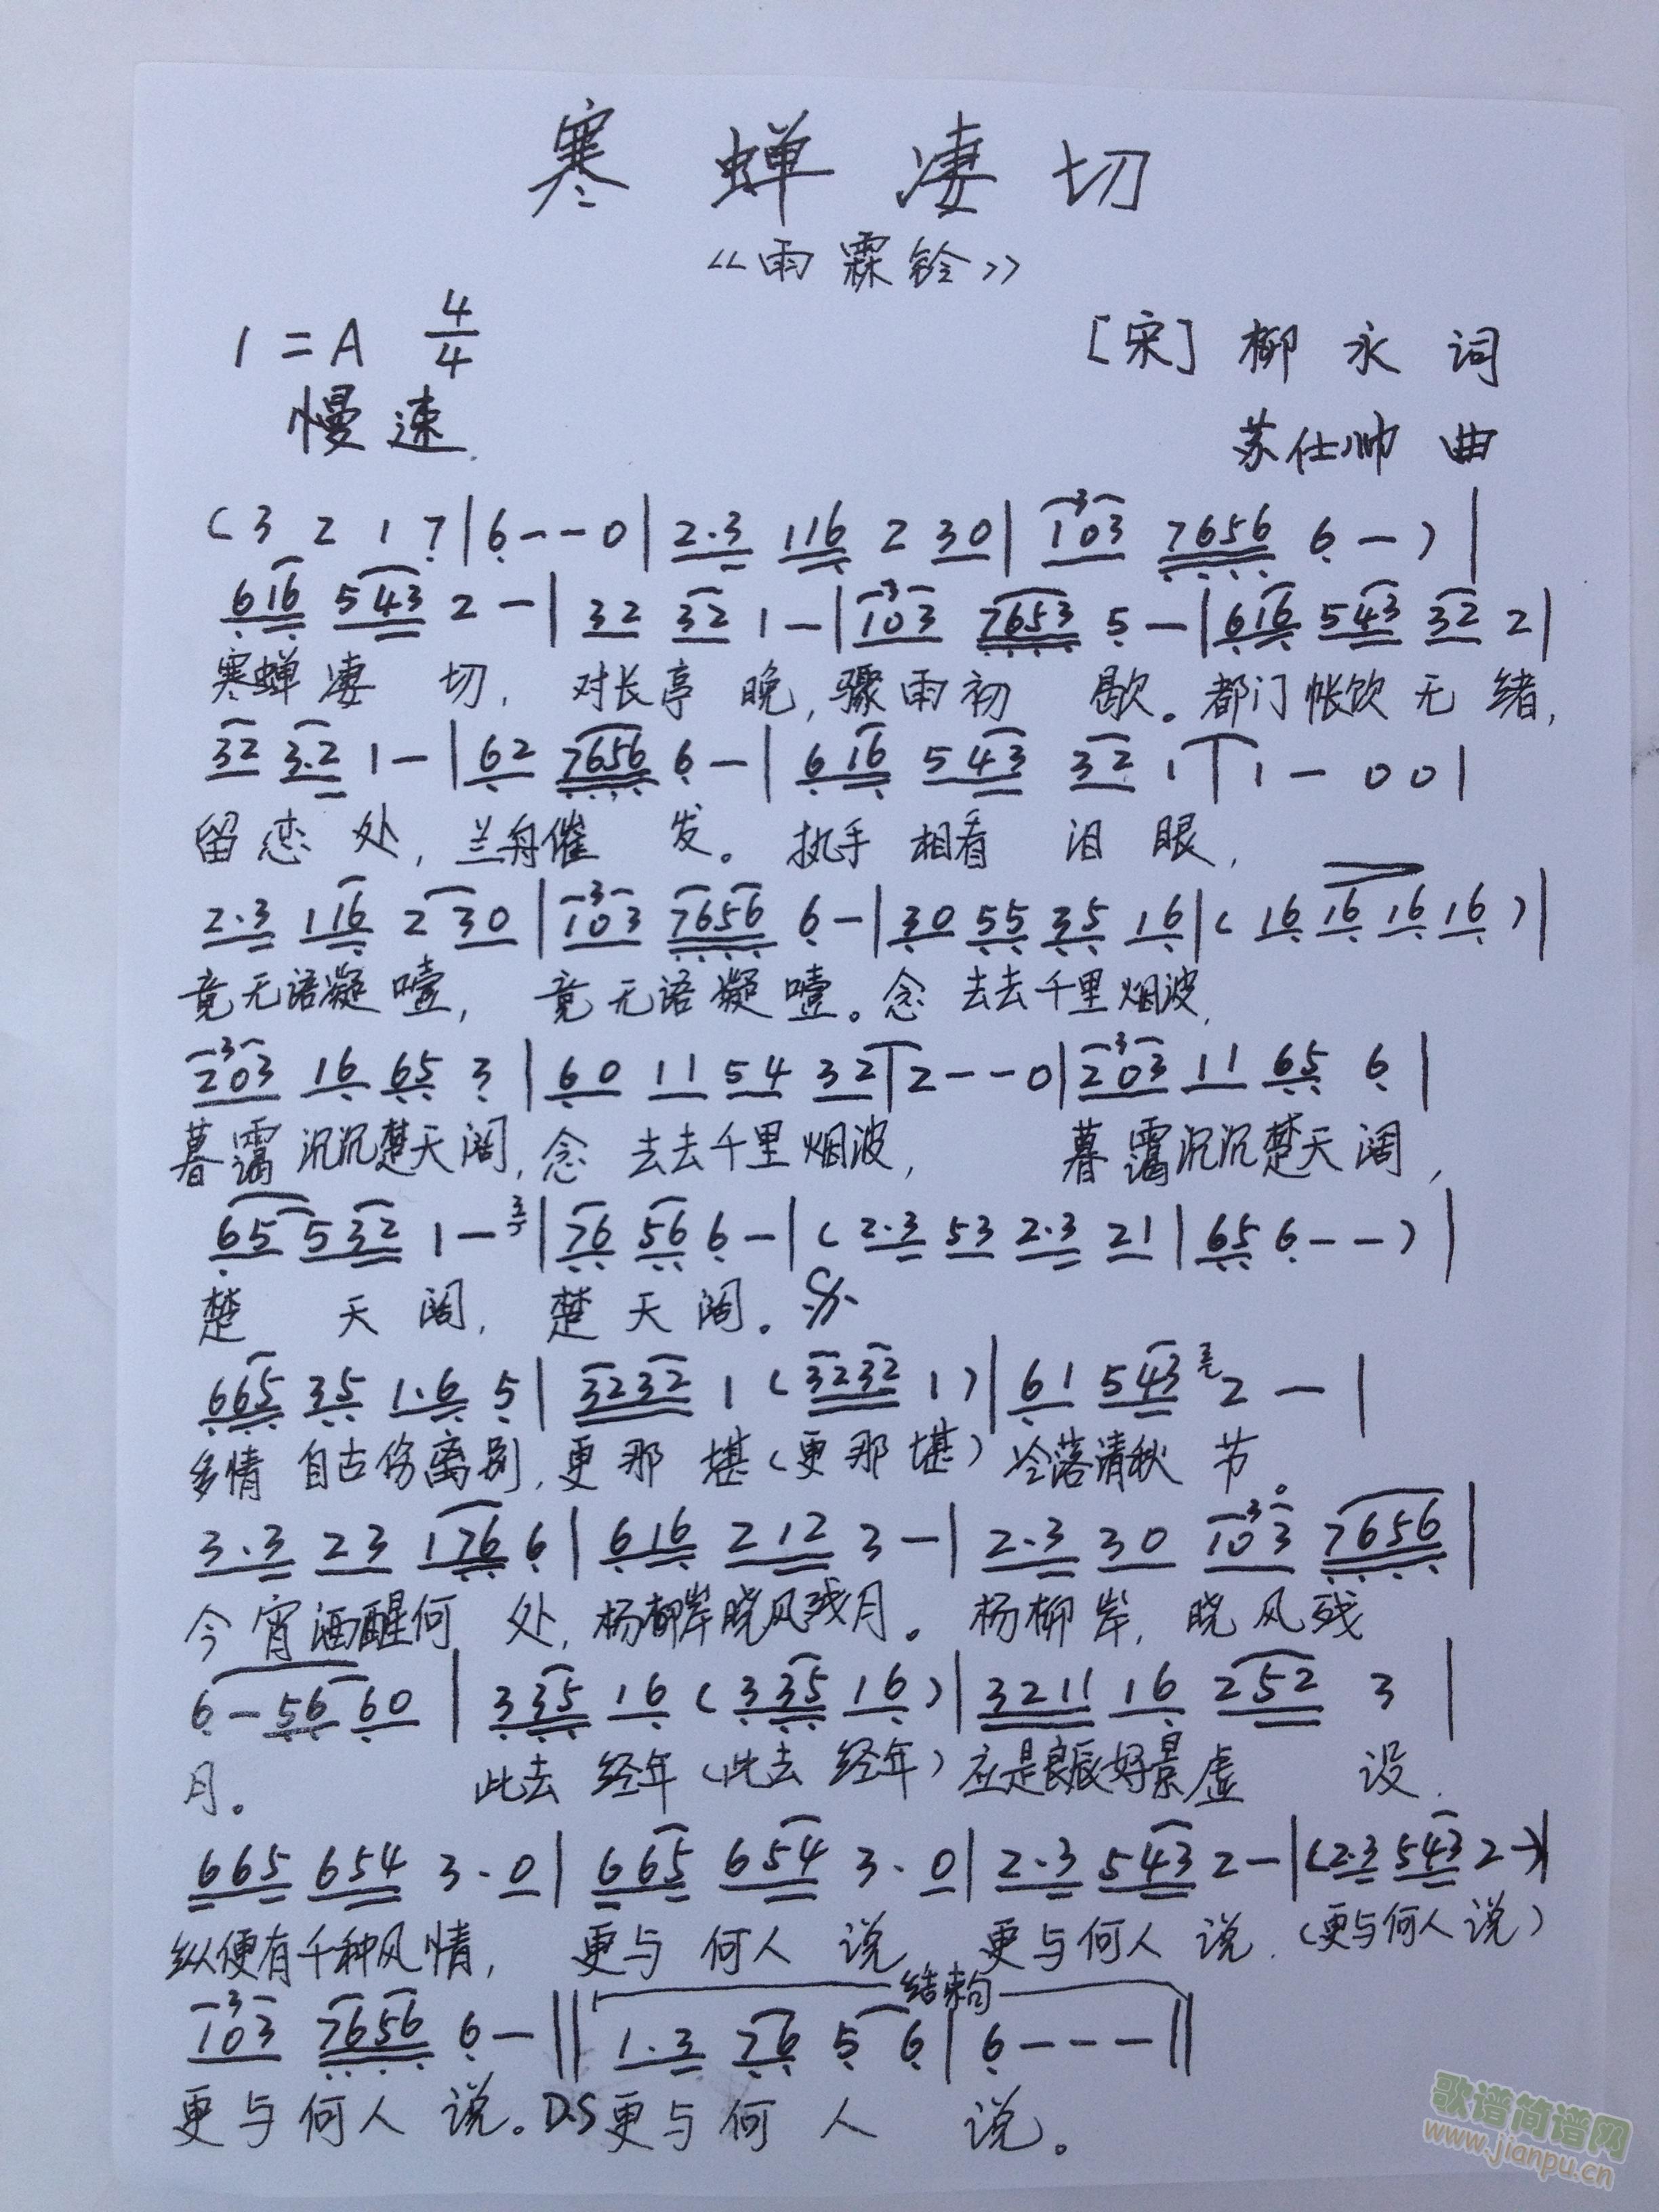 寒蝉凄切
《雨霖铃》
1=A 4/4
[宋] 柳永 词
慢速
苏仕帅 曲
(3 2 1 7|6--0|2·3 116 2 30|103 7656 6-)|
616 543 2-|32 32 1-|103 7653 5-|616 543 32 2|
寒蝉凄切,对长亭晚,骤雨初歇。都门帐饮无绪,
32 3·2 1-|62 7656 6-|6 16 543 32 1|1-00|
留恋处,兰舟催发。执手相看泪眼,
2·3 116 2 30|103 7656 6-|30 55 35 16|(16 16 16 16)|
竟无语凝噎,竟无语凝噎。念去去千里烟波,
203 16 65 3|60 11 54 32|2--0|203 11 65 6|
暮霭沉沉楚天阔,念去去千里烟波,暮霭沉沉楚天阔,
65 532 1-|76 56 6-|(2·3 53 2·3 21|65 6--)|
楚天阔,楚天阔。
665 35 1·6 5|3232 1 (3232 1)|61 543 2-|
多情自古伤离别,更那堪(更那堪)冷落清秋节。
3·3 23 176 6|616 212 3-|2·3 30 103 7656|
今宵酒醒何处,杨柳岸晓风残月。杨柳岸,晓风残
6-56 60|335 16 (335 16)|3211 16 252 3|
月。此去经年(此去经年)应是良辰好景虚设.
665 654 3·0|665 654 3·0|2·3 543 2-|(2·3 543 2-)|
纵便有千种风情,更与何人说 更与何人说.(更与何人说)
结束句
103 7656 6-||1·3 76 5 6|6---||
更与何人说。D.S更与何人说。
歌谱简谱网
www.jianpu.cn